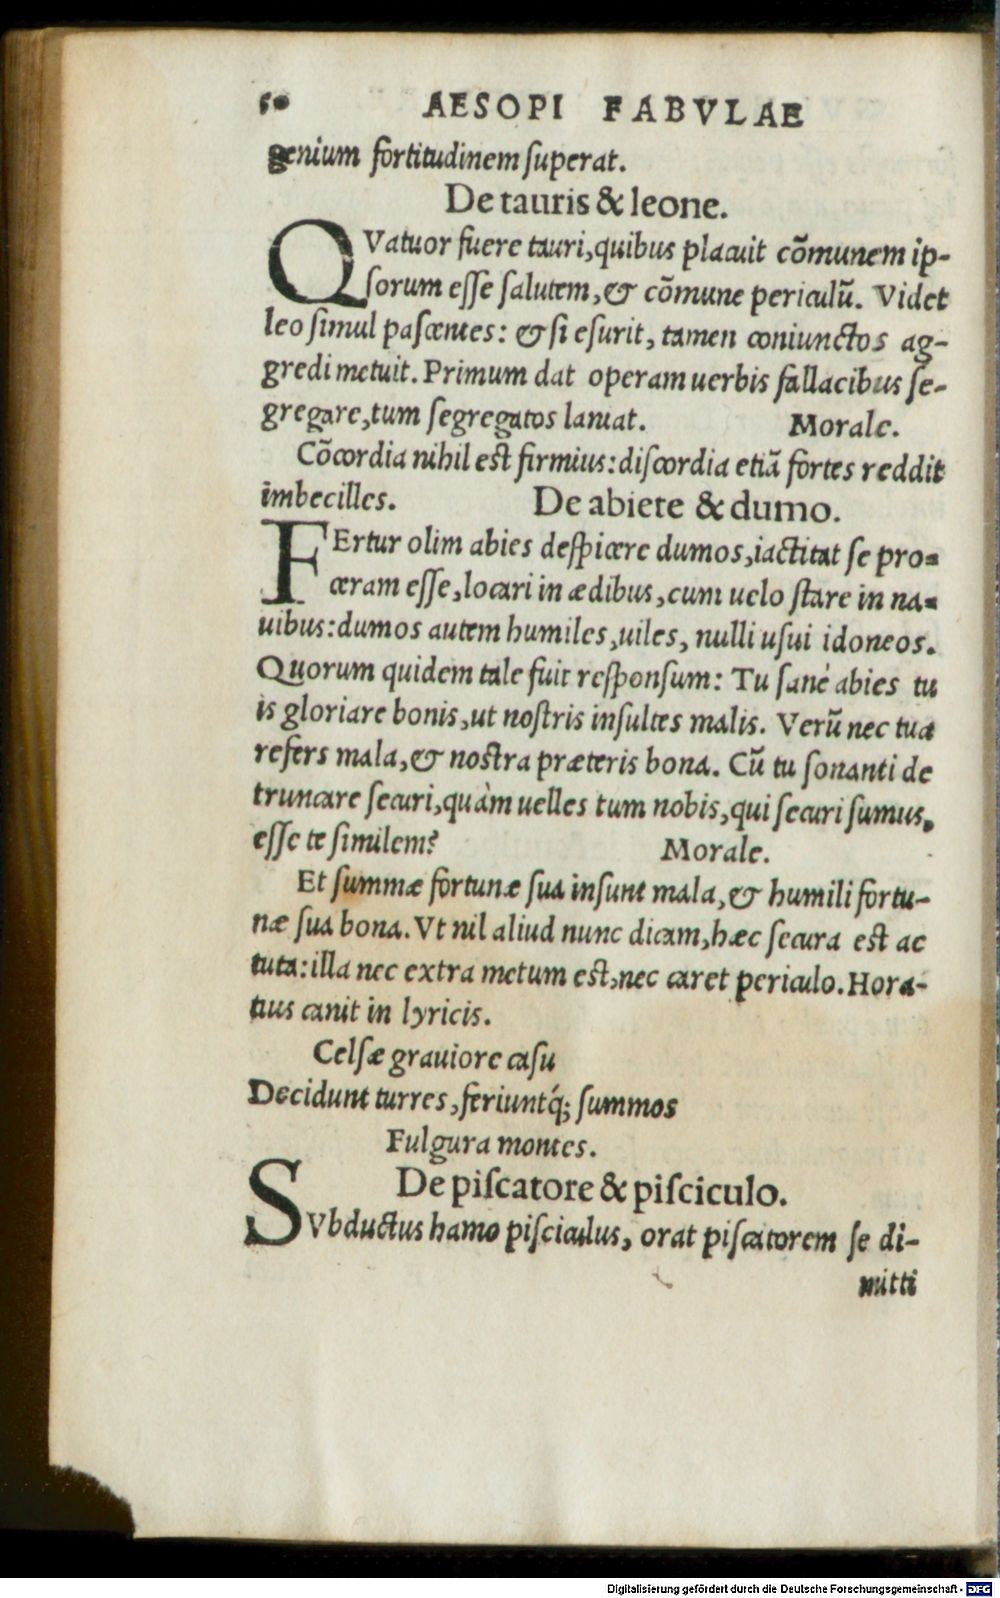 50 AESOPI FABVLAE
genium fortitudinem ſuperat.
De tauris & leone.
QVatuor fuere tauri, quibus placuit cõmunem ip-
ſorum eſſe ſalutem, & cõmune periculũ. Videt
leo ſimul paſcentes: & ſi eſurit, tamen coniunctos ag-
gredi metuit. Primum dat operam uerbis fallacibus ſe-
gregare, tum ſegregatos laniat. Morale.
Cõcordia nihil eſt firmius: diſcordia etiã fortes reddit
imbecilles. De abiete & dumo.
FErtur olim abies deſpicere dumos, iactitat ſe pro-
ceram eſſe, locari in ædibus, cum uelo ſtare in na-
uibus: dumos autem humiles, uiles, nulli uſui idoneos.
Quorum quidem tale fuit reſponſum: Tu ſanè abies tu
is gloriare bonis, ut noſtris inſultes malis. Verũ nec tua
refers mala, & noſtra præteris bona. Cũ tu ſonanti de
truncare ſecuri, quàm uelles tum nobis, qui ſecuri ſumus,
eſſe te ſimilem? Morale.
Et ſummæ fortunæ ſua inſunt mala, & humili fortu-
næ ſua bona. Vt nil aliud nunc dicam, hæc ſecura eſt ac
tuta: illa nec extra metum eſt, nec caret periculo. Hora-
tius canit in lyricis.
Celſæ grauiore caſu
Decidunt turres, feriuntq́; ſummos
Fulgura montes.
De piſcatore & piſciculo.
SVbductus hamo piſciculus, orat piſcatorem ſe di-
mitti
Digitalisierung gefördert durch die Deutsche Forschungsgemeinschaft - DFG